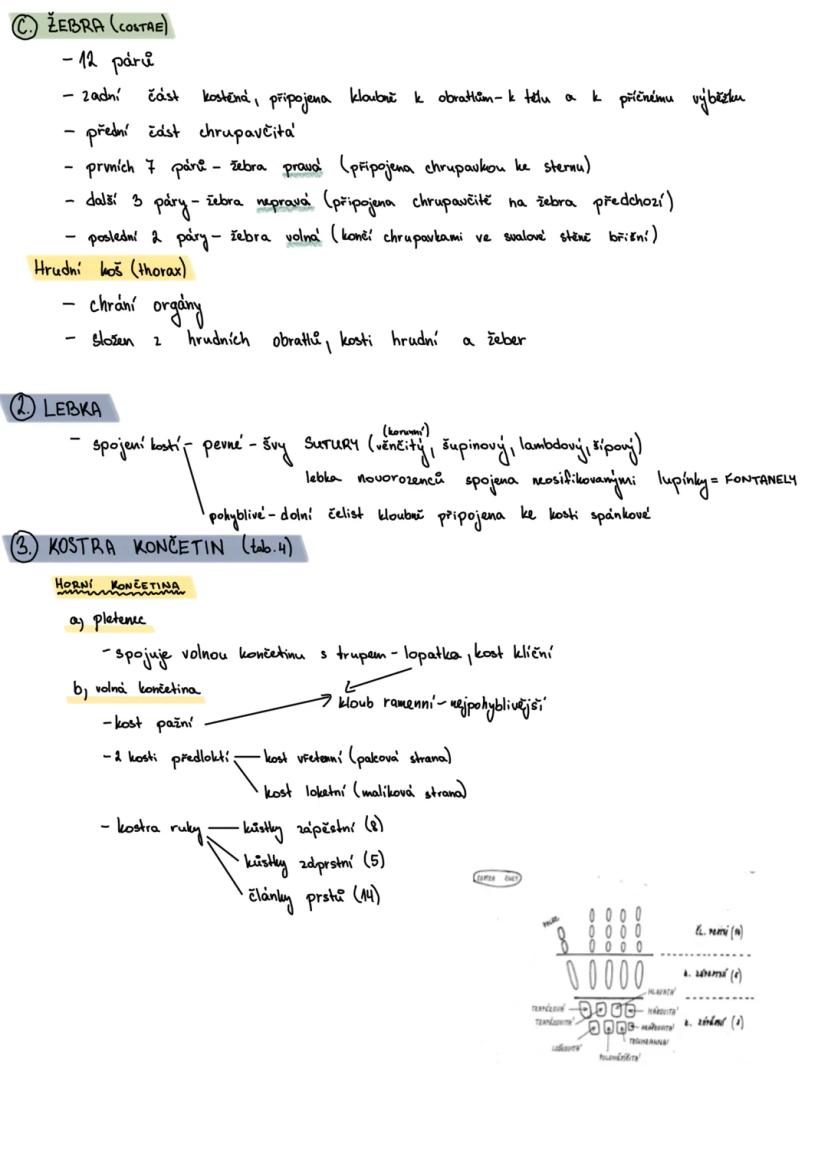 C. ŽEBRA (COSTAE)
- 12 párů
- zadní část kostěná, připojena kloubně k obratlům - k tělu a k příčnému výběžku
- přední část chrupavčitá
- prvních 7 párů - žebra pravá (připojena chrupavkou ke sternu)
- další 3 páry - žebra nepravá (připojena chrupavčitě na žebra předchozí)
- poslední 2 páry - žebra volná (končí chrupavkami ve svalové stěně břišní)
Hrudní koš (thorax)
- chrání orgány
- složen z hrudních obratlů, kosti hrudní a žeber
2. LEBKA
(korunní)
- spojení kostí - pevné - švy SUTURY (věnčitý, šupinový, lambdový, šípový)
lebka novorozenců spojena neosifikovanými lupínky = FONTANELY
pohyblivé - dolní čelist kloubně připojena ke kosti spánkové
3. KOSTRA KONČETIN (tab. 4)
HORNÍ KONČETINA
a) pletenec
- spojuje volnou končetinu s trupem - lopatka, kost klíční
b) volná končetina
kloub ramenní - nejpohyblivější
- kost pažní
- 2 kosti předloktí - kost vřetenní (palcová strana)
kost loketní (malíková strana)
- kostra ruky - kůstky zápěstní (8)
kůstky záprstní (5)
články prstů (14)
PALEC
HLAVATÁ
TRAPÉZOVÁ
TRAPÉZOVITÁ
TROJHRANNÁ
POLOMĚSÍČITÁ